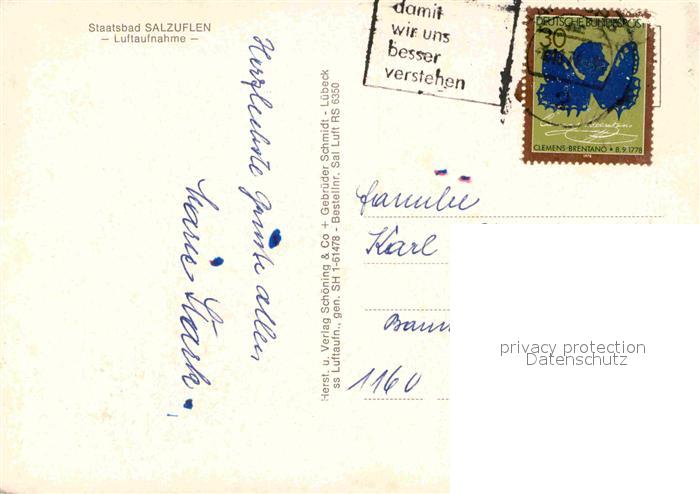 Staatsbad SALZUFLEN
– Luftaufnahme –
Herzlichste Grüße allen
Marie Stark
Herst. u. Verlag Schöning & Co + Gebrüder Schmidt - Lübeck
ss Luftaufn., gen. SH 1-61478 - Bestellnr. Sal Luft RS 6350
damit
wir uns
besser
verstehen
DEUTSCHE BUNDESPOST
30
CLEMENS BRENTANO • 8.9.1778
Familie
Karl
1160
privacy protection
Datenschutz